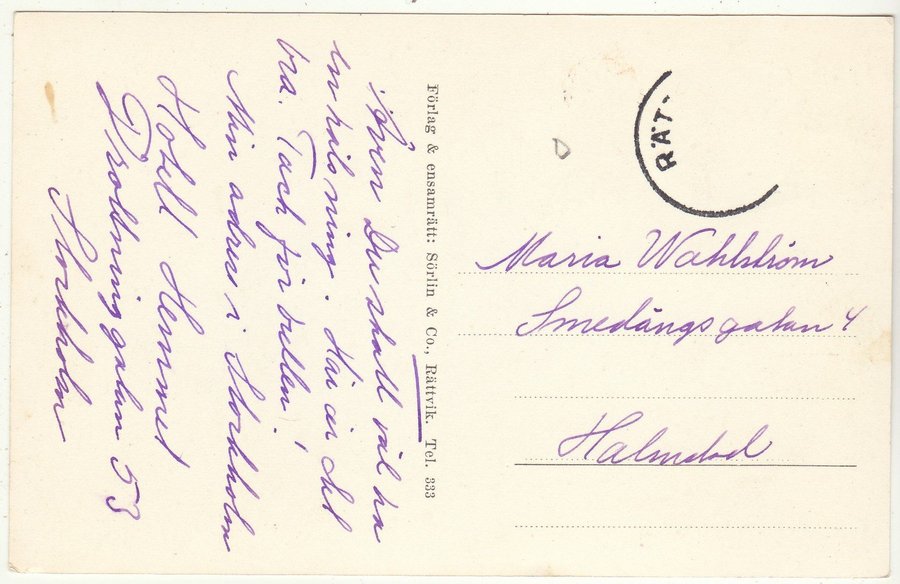 Även Du skall väl ha
en hälsning. Här är det
bra. Tack för bullen!
Min adress i Stockholm
Hotell Hemmet
Drottninggatan 53
Stockholm
Förlag & ensamrätt: Sörlin & Co., Rättvik. Tel. 333
RÄT
Maria Wahlström
Smedängsgatan 4
Halmstad